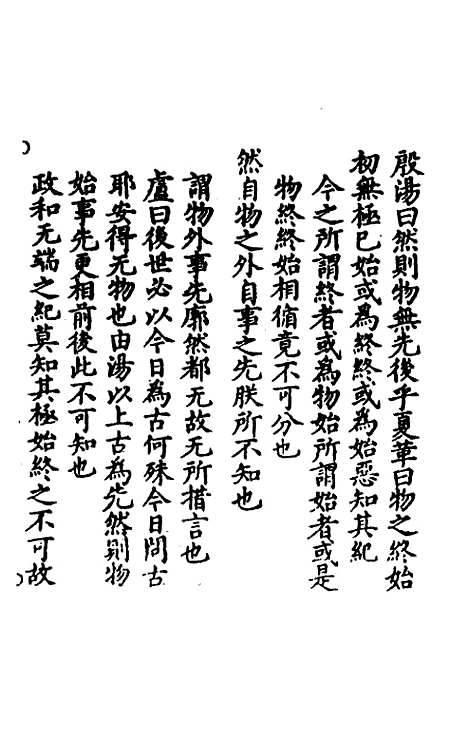 殷湯曰然則物無先後乎夏革曰物之終始
初無極已始或爲終終或爲始惡知其紀
今之所謂終者或爲物始所謂始者或是
物終終始相循竟不可分也
然自物之外自事之先朕所不知也
謂物外事先廓然都无故无所措言也
盧曰後世必以今日為古何殊今日問古
耶安得无物也由湯以上古為先然則物
始事先更相前後此不可知也
政和无端之紀莫知其極始終之不可故